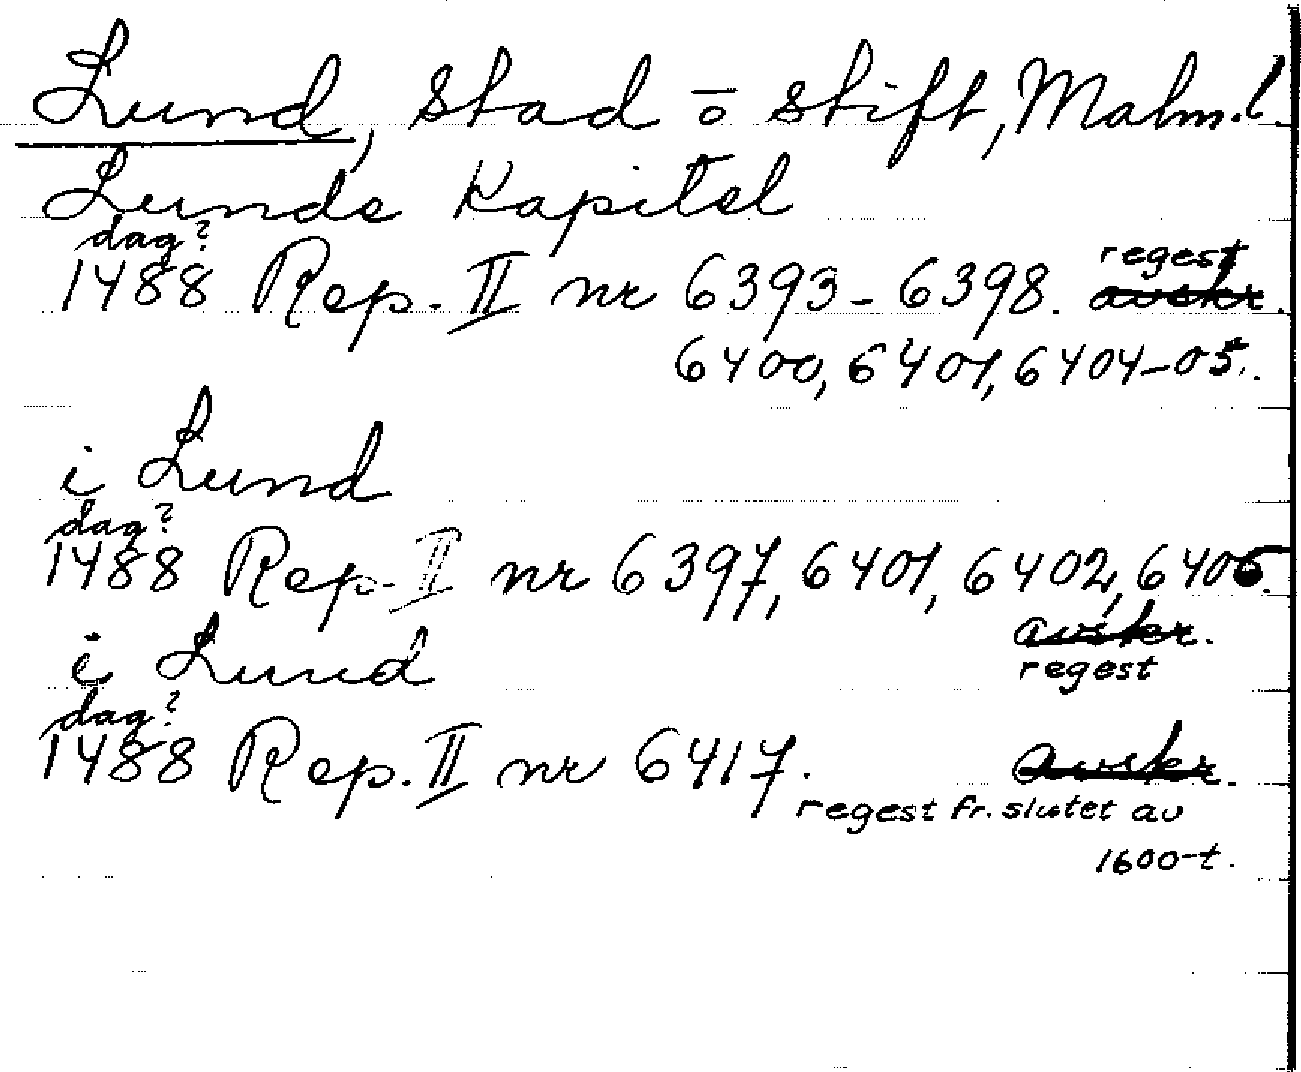 Lund, stad o stift, Malm.l.
Lunds Kapitel
dag?
regest
1488 Rep. II nr 6393-6398. avskr.
6400, 6401, 6404-05.
i Lund
dag?
1488 Rep. II nr 6397, 6401, 6402, 6406.
avskr.
i Lund
regest
dag?
1488 Rep. II nr 6417. avskr.
regest fr. slutet av
1600-t.